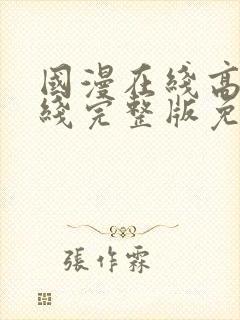 國漫在綫高
綫完整版免
張作霖